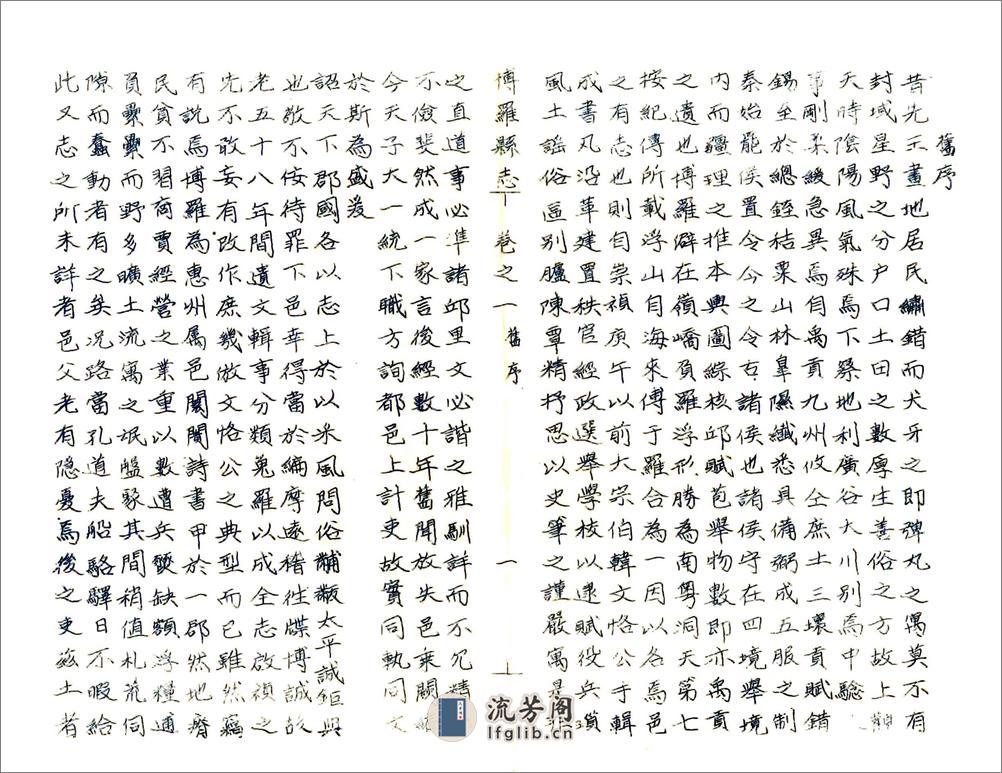 舊序
昔先王畫地居民繡錯而犬牙之即彈丸之㝢莫不有
封域星野之分户口土田之數厚生善俗之方故上
天時陰陽風氣殊焉下察地利廣谷大川别焉中騐
事剛柔緩急異焉自禹貢九州攸仝庶土三壤貢賦錯
錫至於總銍秸粟山林皐隰纖悉具備弼成五服之制
秦始罷侯置令今之令古諸侯也諸侯守在四境舉境
内而疆理之推本輿圖綜核邱賦苞舉物數即亦禹貢
之遺也博羅僻在嶺嶠負羅浮形勝為南粤洞天第七
按紀傳所載浮山自海來傅于羅合為一因以名焉邑
之有志也則自崇禎庚午以前大宗伯韓文恪公手輯
成書凡沿革建置秩官經政選舉學校以逮賦役兵
風土謡俗區别臚陳覃精抒思以史筆之謹嚴寓是非
博羅縣志 卷之一 舊序 一
之直道事必準諸邱里文必諧之雅馴詳而不冗精
不儉斐然成一家言後經數十年舊聞放失邑乘闕
今天子大一統下職方詢都邑上計吏故實同軌同文
於斯為盛爰
詔天下郡國各以志上於以釆風問俗黼黻太平誠鉅典
也敬不侫待罪下邑幸得當於編摩逺稽往牒博誠故
老五十八年間遺文輯事分類蒐羅以成全志啟禎之
先不敢妄有改作庶幾倣文恪公之典型而已雖然竊
有説焉博羅為惠州属邑閭閻詩書甲於一郡然地瘠
民貧不習商賈經營之業重以數遭兵燹缺額浮糧逋
負纍纍而野多曠土流寓之氓盤聚其間稍值札荒伺
隙而蠢動者有之矣况路當孔道夫船駱驛日不暇給
此又志之所未詳者邑父老有隱憂焉後之吏兹土者
流芳阁
lfglib.cn